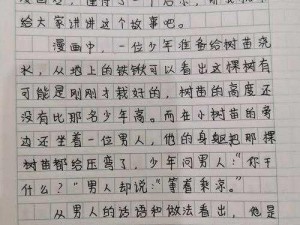 给大家讲讲这个故事吧。
漫画中，一位少年准备给树苗浇
水，从地上的铁锹可以看出这棵树有
可能是刚刚才栽好的，树苗的高度还
没有比那名少年高。而在小树苗的旁
边还坐着一位男人，他的身躯把那棵
树苗都给压弯了，少年问男人：“你干
什么？”男人却说：“等着乘凉。”
从男人的话语和做法看出，他是